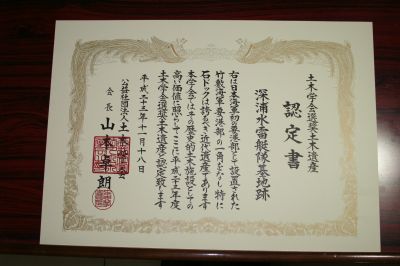 土木学会選奨土木遺産
認定書
深浦水雷艇隊基地跡
右は日本海軍初の要港部として設置された
竹敷海軍要港部の一角をなし特に
石ドックは誇るべき近代遺産であります
本学会ではその歴史的土木施設としての
高い価値に照らしてここに平成二十三年度
土木学会選奨土木遺産と認定致します
平成二十三年十一月十八日
公益社団法人土木学会
会長 山本卓朗